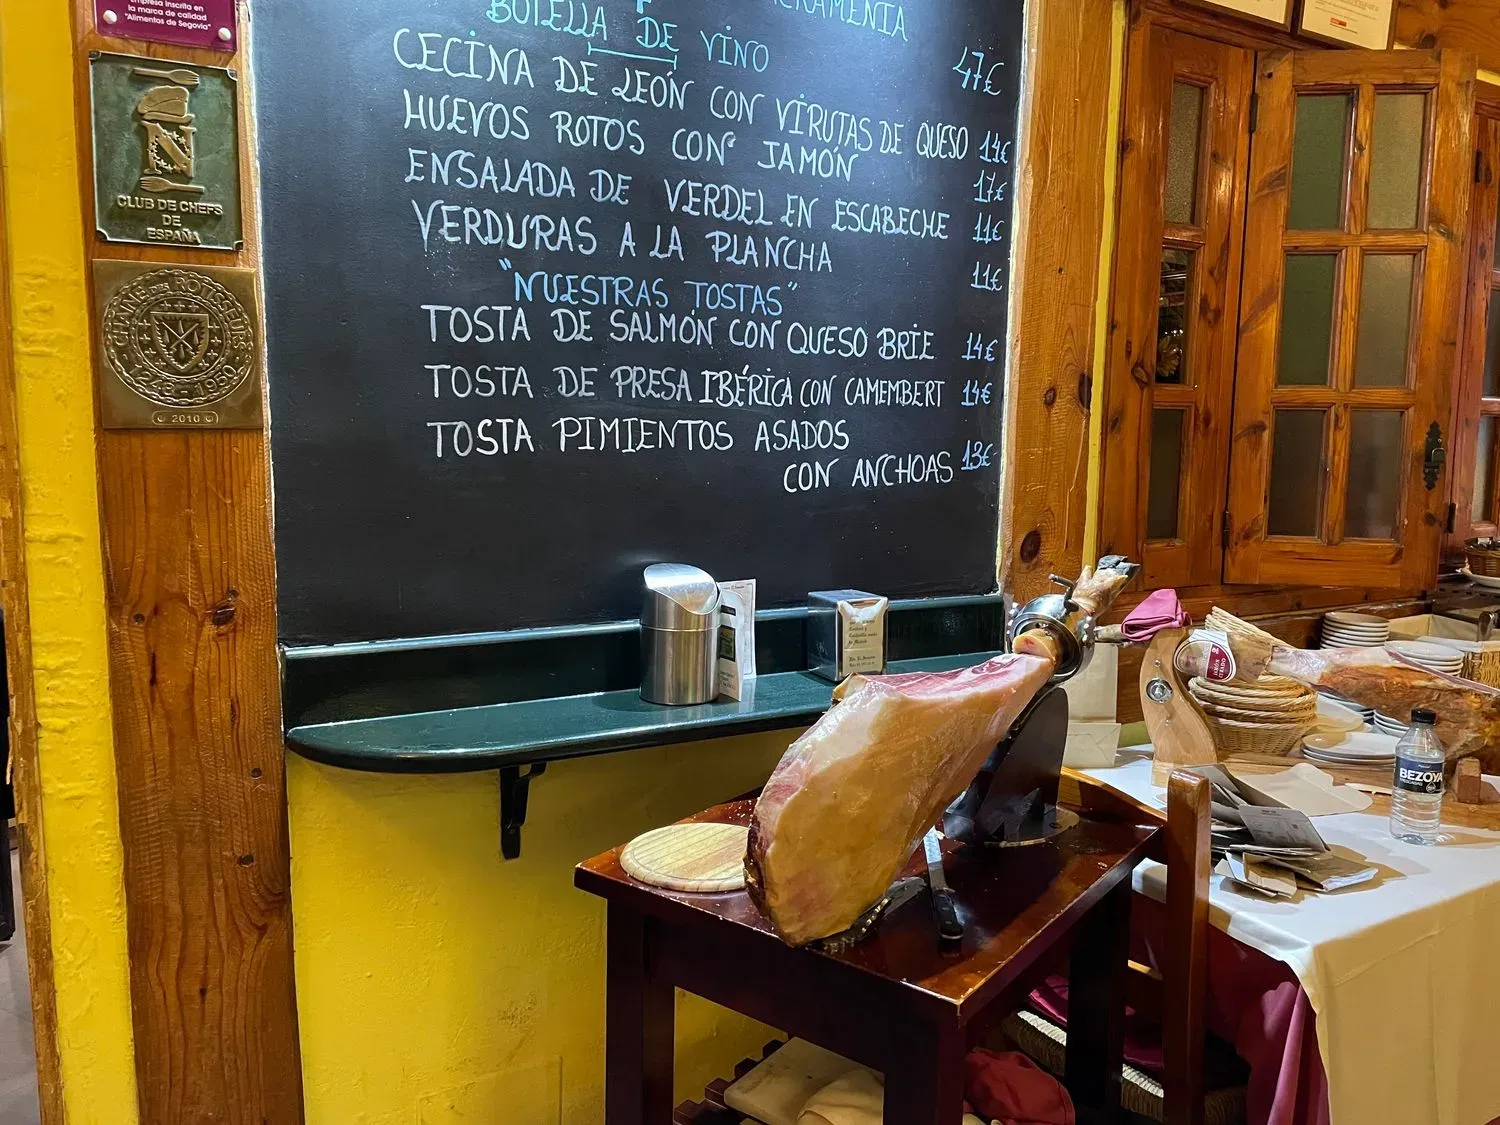 empresa inscrita en
la marca de calidad
"Alimentos de Segovia"
CLUB DE CHEFS
DE
ESPAÑA
CHAINE DES ROTISSEURS
1248-1950
2010
BOTELLA DE VINO
47€
CECINA DE LEÓN CON VIRUTAS DE QUESO 14€
HUEVOS ROTOS CON JAMÓN 17€
ENSALADA DE VERDEL EN ESCABECHE 11€
VERDURAS A LA PLANCHA 11€
"NUESTRAS TOSTAS"
TOSTA DE SALMÓN CON QUESO BRIE 14€
TOSTA DE PRESA IBÉRICA CON CAMEMBERT 14€
TOSTA PIMIENTOS ASADOS
CON ANCHOAS 13€
BEZOYA